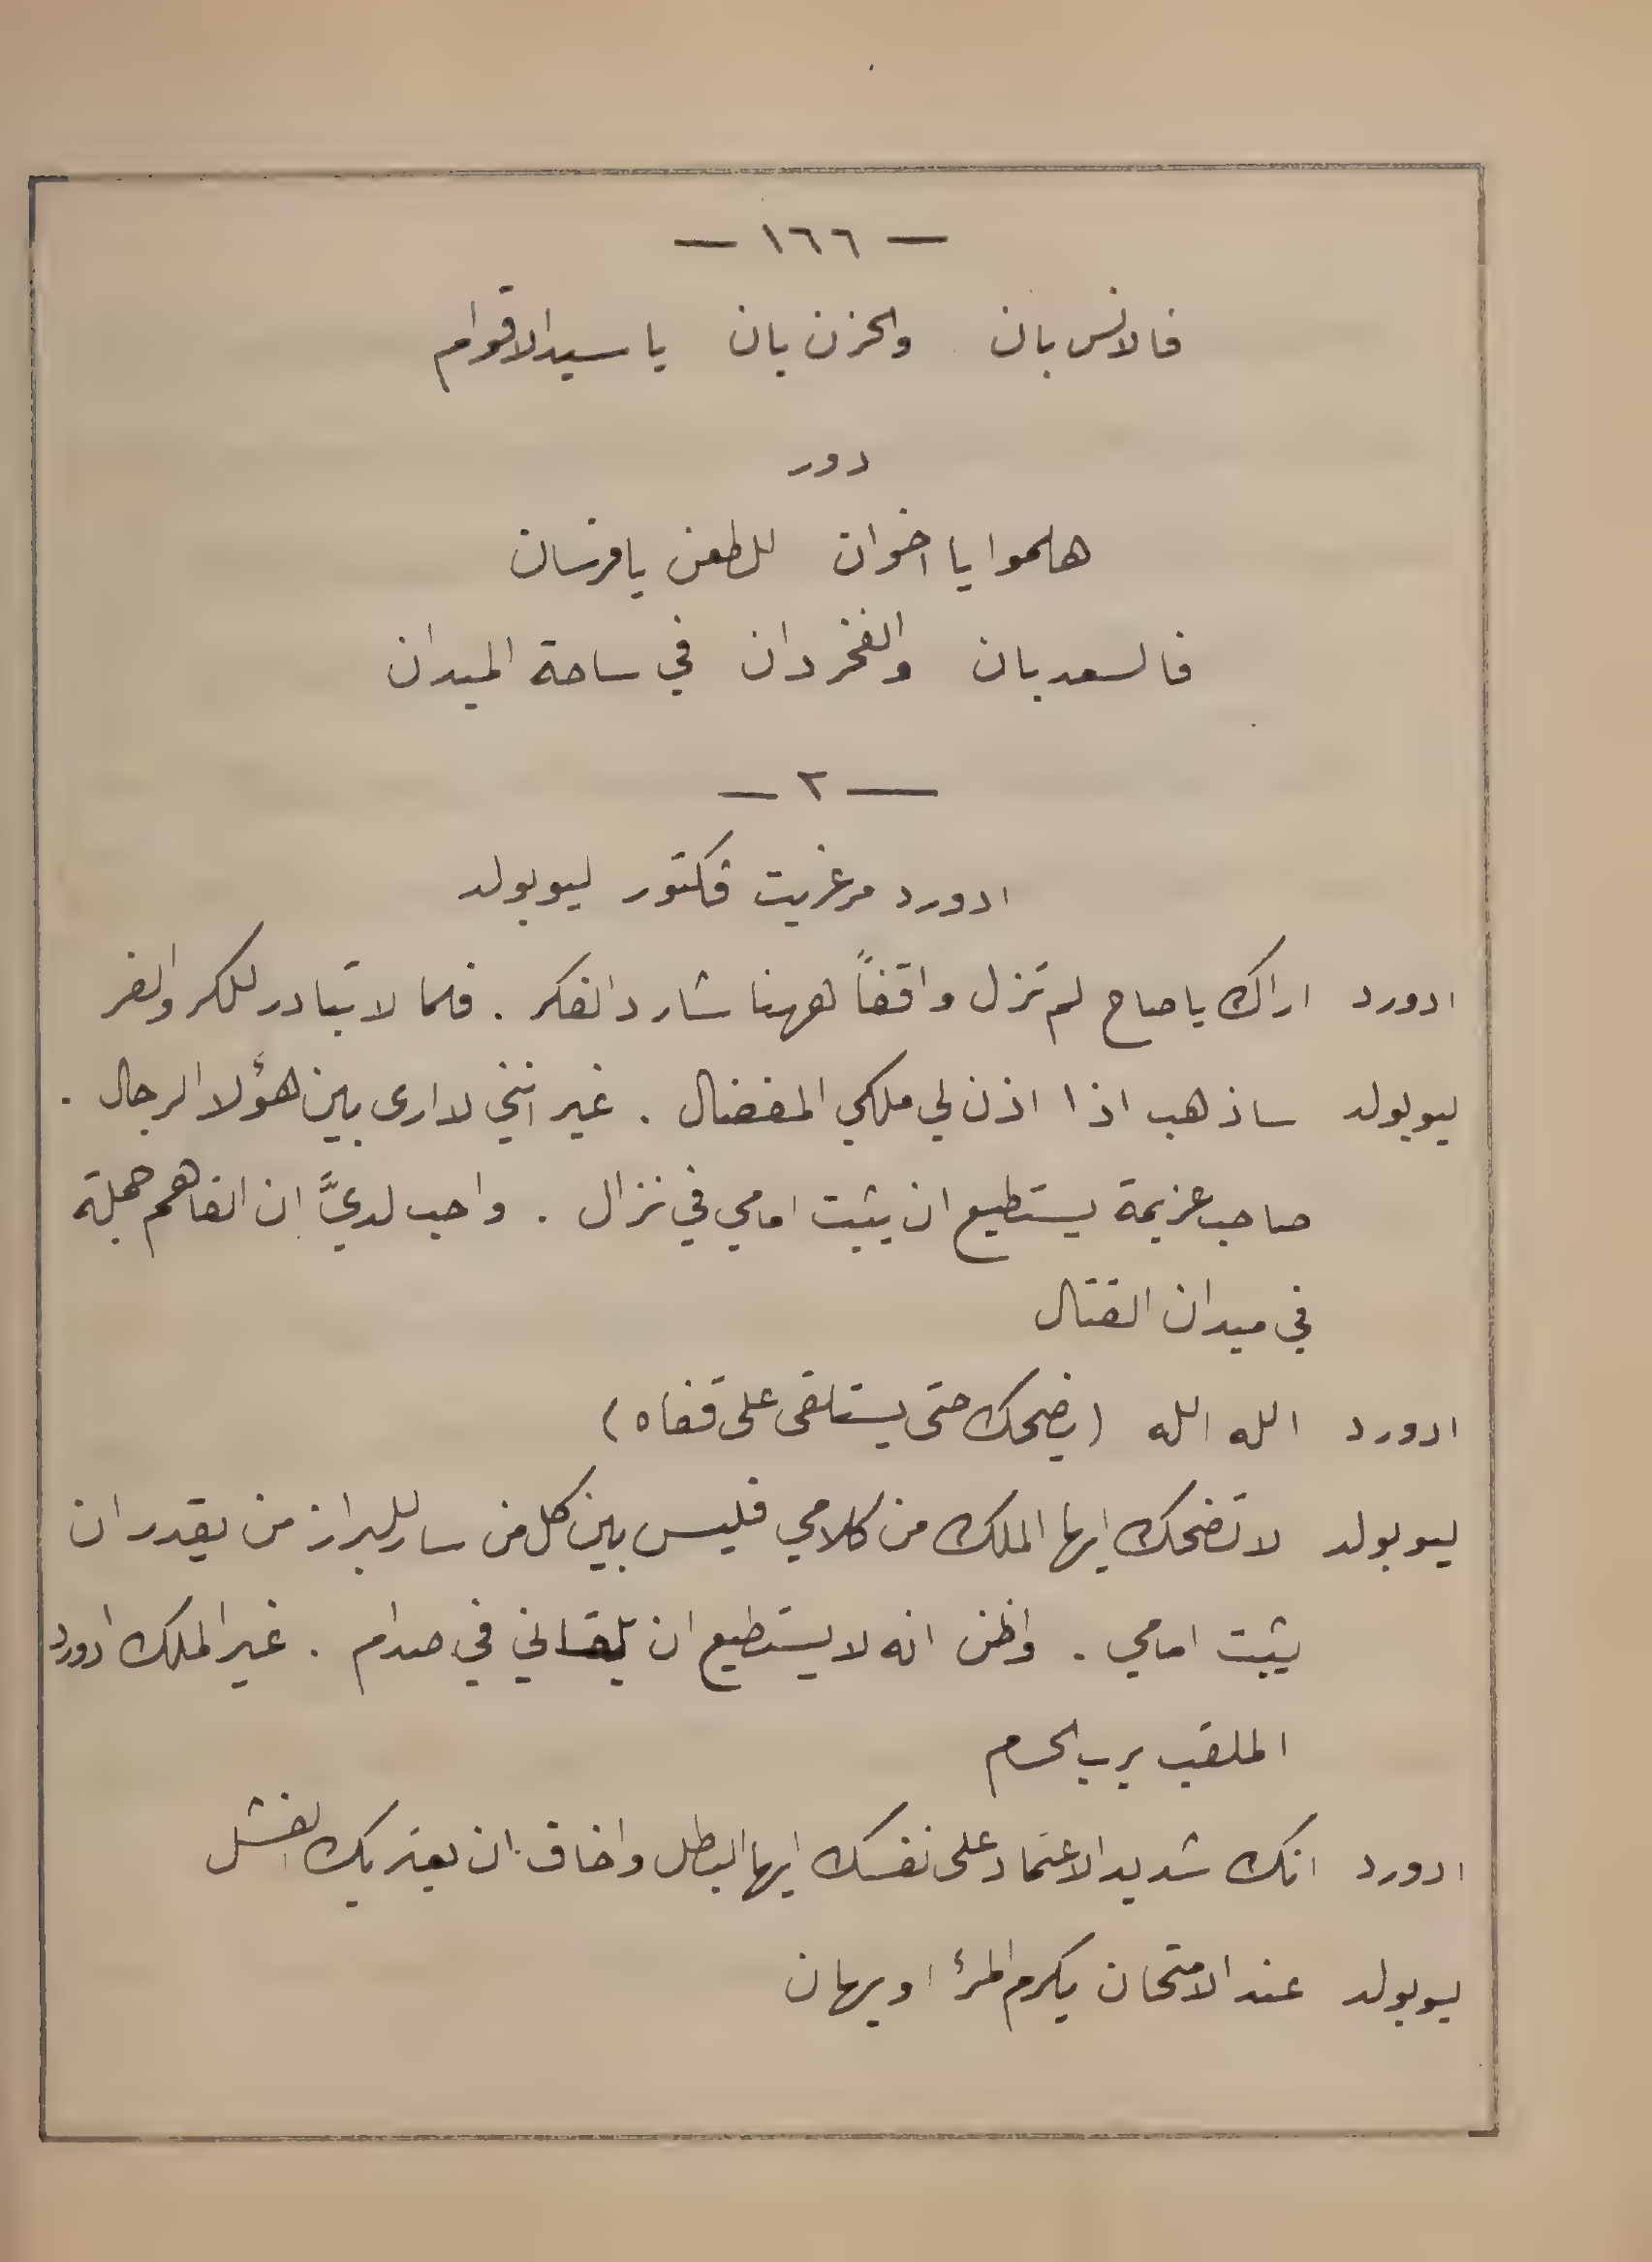 — ١٦٦ —
فالانس بان والحزن بان يا سيد الاقوام
دور
هلموا يا اخوان للطعن يا فرسان
فالسعد بان والفخر دان في ساحة الميدان
— ٢ —
ادورد مرغريت فكتور ليوبولد
ادورد اراك يا صاح لم تزل واقفاً ههنا شارد الفكر . فلما لا تبادر للكر والفر
ليوبولد ساذهب اذا اذن لي ملكي المفضال . غير انني لا ارى بين هؤلا الرجال .
صاحب عزيمة يستطيع ان يثبت امامي في نزال . واحب لديَّ ان القاهم جملة
في ميدان القتال
ادورد الله الله (يضحك حتى يستلقى على قفاه)
ليوبولد لا تضحك ايها الملك من كلامي فليس بين كل من سار للبراز من يقدر ان
يثبت امامي . واظن انه لا يستطيع ان يلقاني في صدام . غير الملك ادورد
الملقب برب الحسم
ادورد انك شديد الاعتماد على نفسك ايها البطل واخاف ان يعتريك الفشل
ليوبولد عند الامتحان يكرم المرؤ او يهان